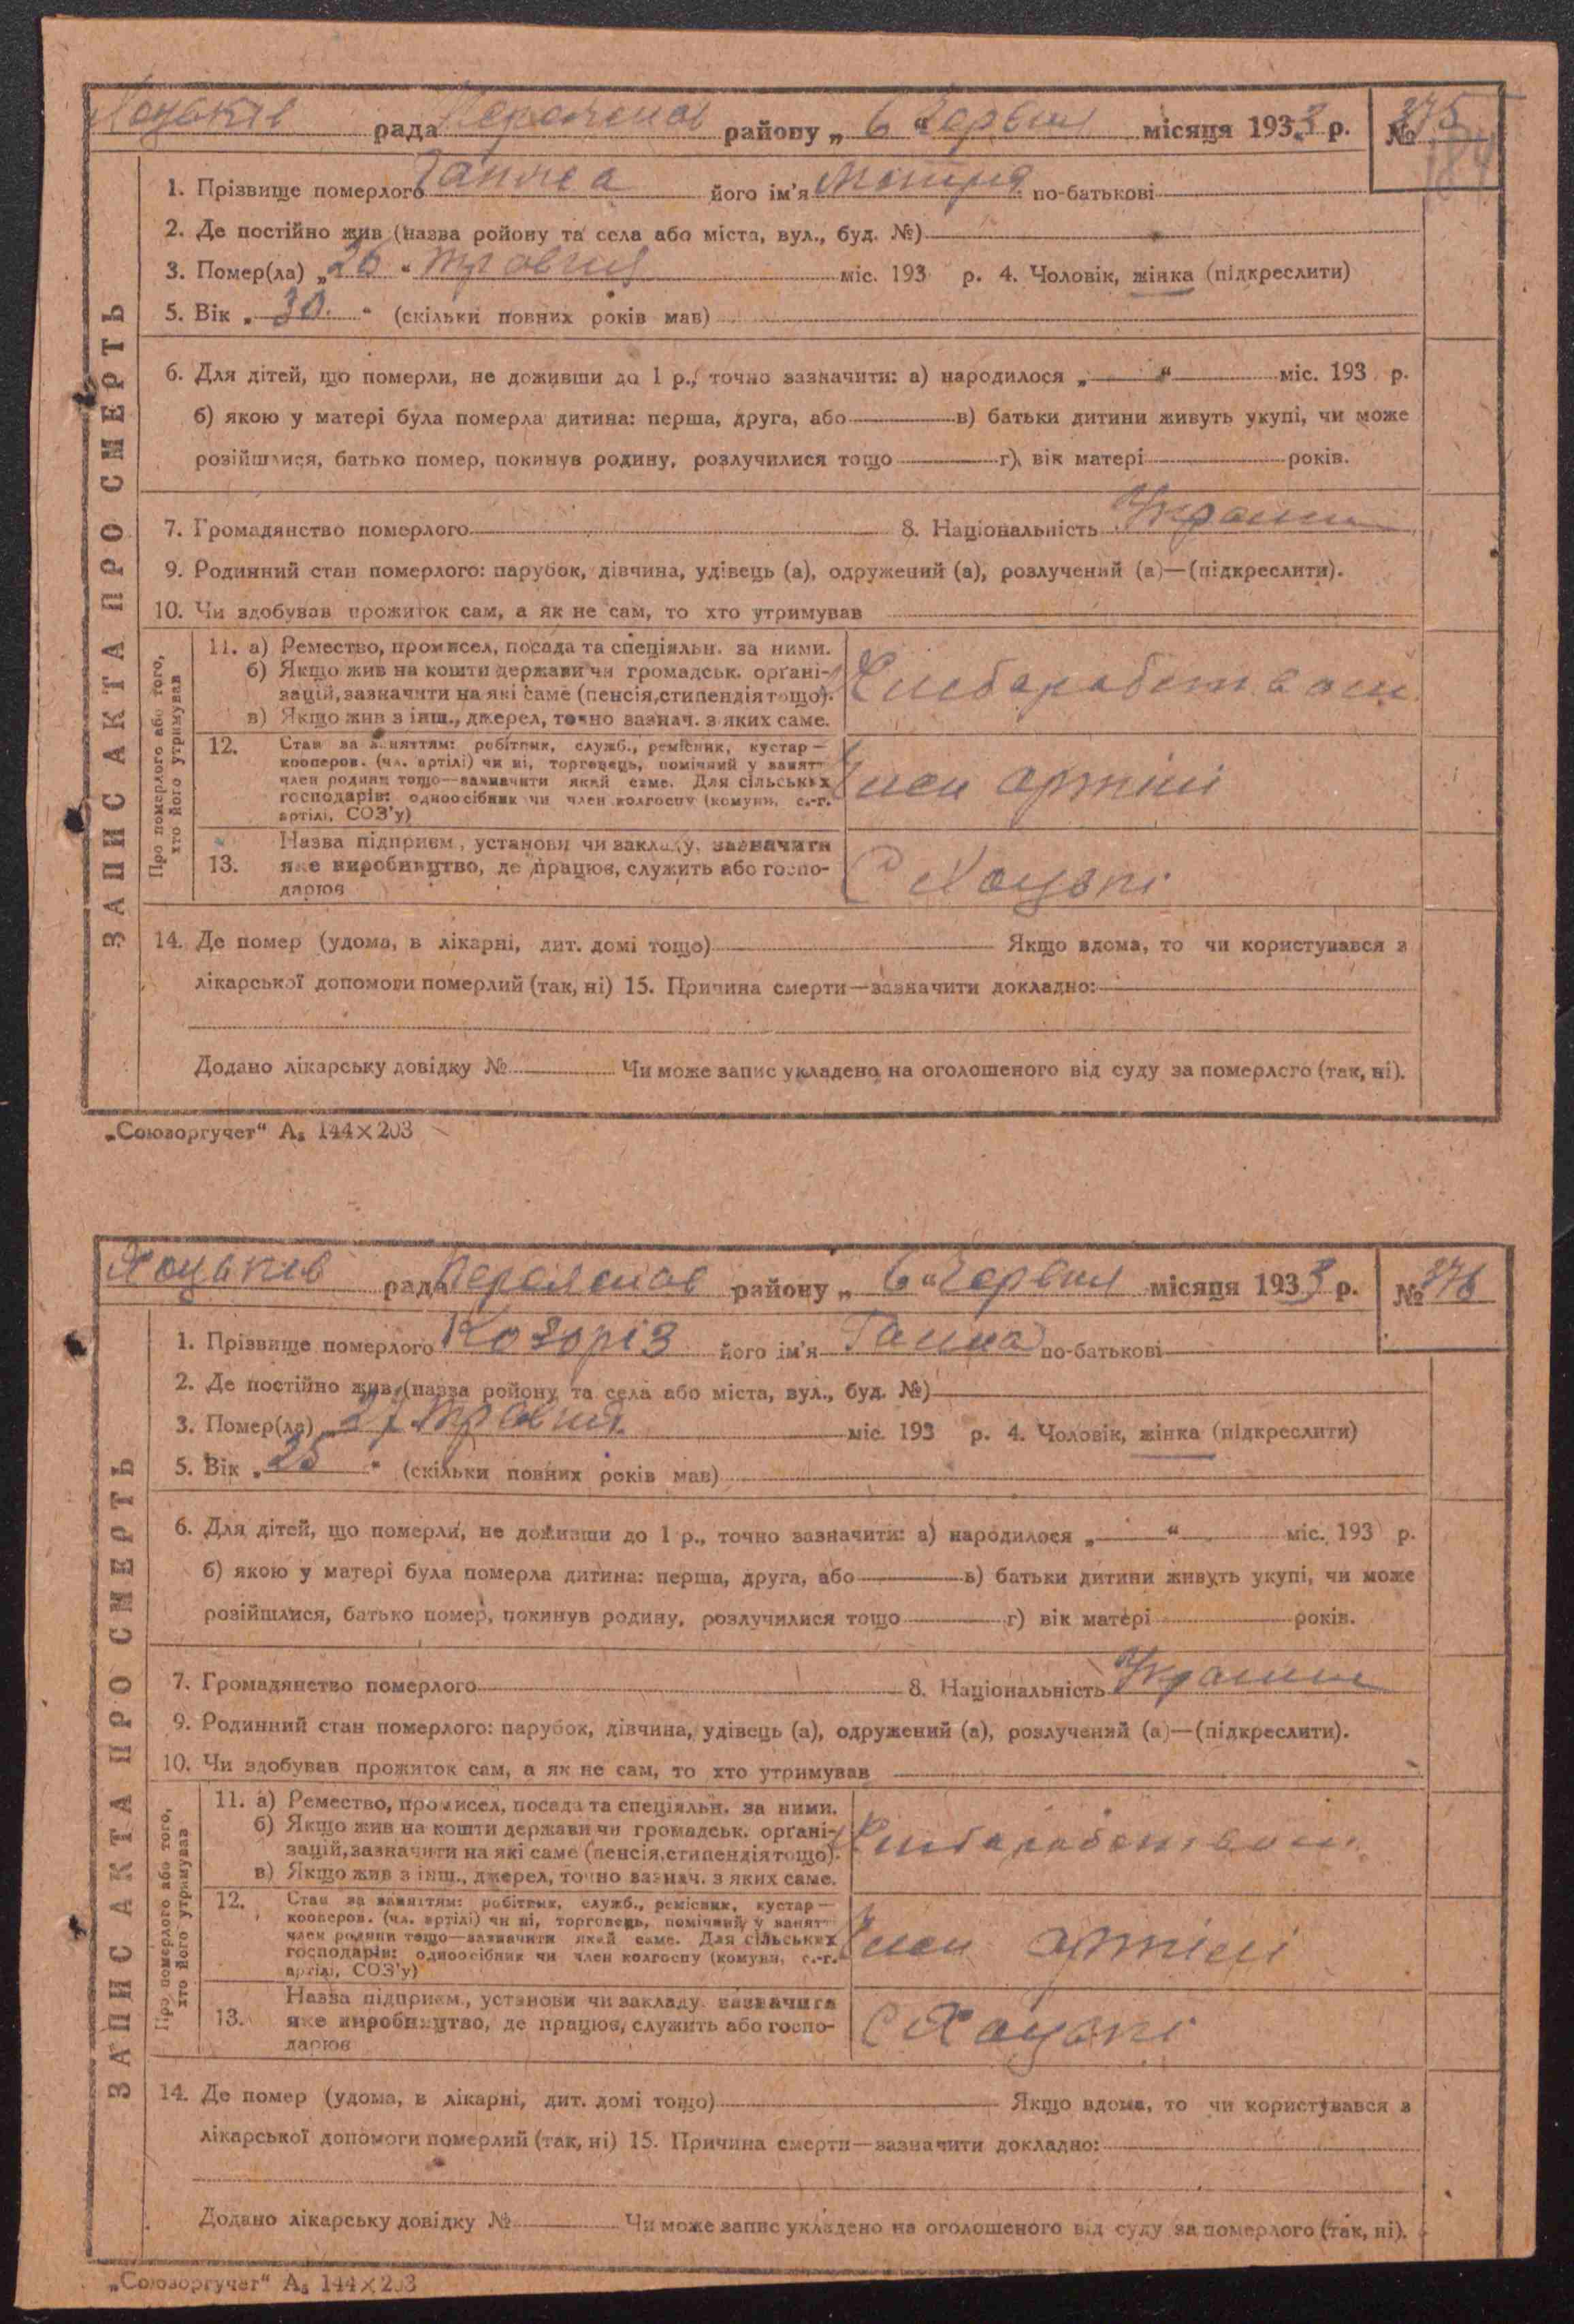 Хоцьків рада Переяслав району „ 6 “ Червня місяця 1933 р. № 375
184
1. Прізвище померлого його ім'я Мотря по-батькові
2. Де постійно жив (назва ройону та села або міста, вул., буд. №)
3. Помер(ла) „26“ травня міс. 193 р. 4. Чоловік, жінка (підкреслити)
5. Вік „30“ (скільки повних років мав)
6. Для дітей, що померли, не доживши до 1 р., точно зазначити: а) народилося „ “ міс. 193 р.
б) якою у матері була померла дитина: перша, друга, або в) батьки дитини живуть укупі, чи може
розійшлися, батько помер, покинув родину, розлучилися тощо г) вік матері років.
7. Громадянство померлого 8. Національність Україн
9. Родинний стан померлого: парубок, дівчина, удівець (а), одружений (а), розлучений (а)—(підкреслити).
10. Чи здобував прожиток сам, а як не сам, то хто утримував
Про померлого або того, хто його утримував
11. а) Ремество, промисел, посада та спеціяльн. за ними.
б) Якщо жив на кошти держави чи громадськ. орґані-
зацій, зазначити на які саме (пенсія, стипендія тощо).
в) Якщо жив з інш., джерел, точно зазнач. з яких саме.
Хлібаработвом
12. Стан за заняттям: робітник, служб., ремісник, кустар—
кооперов. (чл. артілі) чи ні, торговець, помічний у занят—
член родини тощо—зазначити який саме. Для сільських
господарів: одноосібник чи член колгоспу (комуни, с.-г.
артілі, СОЗ'у)
Член артілі
13. Назва підприєм., установи чи закладу, зазначити
яке виробництво, де працює, служить або госпо-
дарює
С Хоцькі
14. Де помер (удома, в лікарні, дит. домі тощо) Якщо вдома, то чи користувався з
лікарської допомоги померлий (так, ні) 15. Причина смерти—зазначити докладно:
Додано лікарську довідку № Чи може запис укладено на оголошеного від суду за померлого (так, ні).
ЗАПИС АКТА ПРО СМЕРТЬ
„Союзоргучет“ А₅ 144×203
Хоцьків рада Переяслав району „ 6 “ Червня місяця 1933 р. № 376
1. Прізвище померлого Козоріз його ім'я Ганна по-батькові
2. Де постійно жив (назва ройону та села або міста, вул., буд. №)
3. Помер(ла) „27 травня міс. 193 р. 4. Чоловік, жінка (підкреслити)
5. Вік „25“ (скільки повних років мав)
6. Для дітей, що померли, не доживши до 1 р., точно зазначити: а) народилося „ “ міс. 193 р.
б) якою у матері була померла дитина: перша, друга, або в) батьки дитини живуть укупі, чи може
розійшлися, батько помер, покинув родину, розлучилися тощо г) вік матері років.
7. Громадянство померлого 8. Національність Україн
9. Родинний стан померлого: парубок, дівчина, удівець (а), одружений (а), розлучений (а)—(підкреслити).
10. Чи здобував прожиток сам, а як не сам, то хто утримував
Про померлого або того, хто його утримував
11. а) Ремество, промисел, посада та спеціяльн. за ними.
б) Якщо жив на кошти держави чи громадськ. орґані-
зацій, зазначити на які саме (пенсія, стипендія тощо).
в) Якщо жив з інш., джерел, точно зазнач. з яких саме.
Хлібаработвом
12. Стан за заняттям: робітник, служб., ремісник, кустар—
кооперов. (чл. артілі) чи ні, торговець, помічний у занят—
член родини тощо—зазначити який саме. Для сільських
господарів: одноосібник чи член колгоспу (комуни, с.-г.
артілі, СОЗ'у)
Член артілі
13. Назва підприєм., установи чи закладу, зазначити
яке виробництво, де працює, служить або госпо-
дарює
С Хоцькі
14. Де помер (удома, в лікарні, дит. домі тощо) Якщо вдома, то чи користувався з
лікарської допомоги померлий (так, ні) 15. Причина смерти—зазначити докладно:
Додано лікарську довідку № Чи може запис укладено на оголошеного від суду за померлого (так, ні).
ЗАПИС АКТА ПРО СМЕРТЬ
„Союзоргучет“ А₅ 144×203